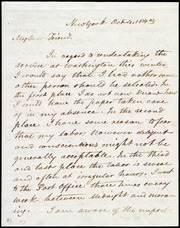 New York Oct 4, 1843
My Dear Friend.
In regard to undertaking the
service at Washington this winter,
I would say that I had rather some
other person should be selected. In
the first place, I do not now know how
I could leave the paper taken care
of in my absence. In the second
place, I have some reason to fear
that my labor, however diligent
and conscientious might not be
generally acceptable. In the third
and last place the labor is severe
and often at irregular hours. I was
to the Post Office three times every
week between midnight and morn-
ing.
I am aware of the import-